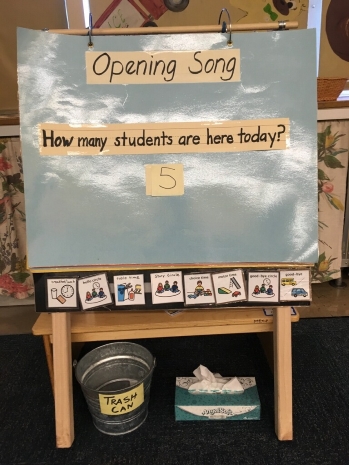 Opening Song
How many students are here today?
5
hello circle
story circle
good-bye circle
good-bye
TRASH
CAN
Angel Soft